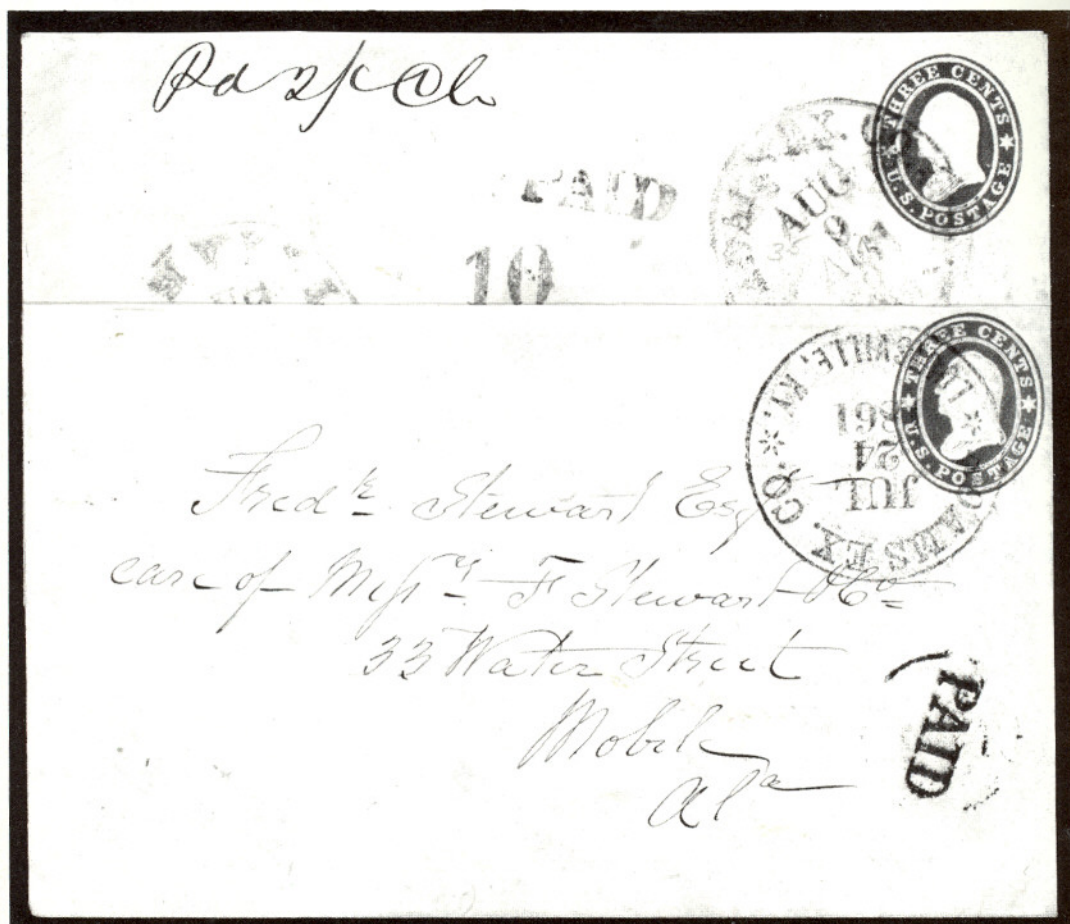 Pd 2/c @h
THREE CENTS
U.S. POSTAGE
AMS EX. C
AUG
9
PAID
10
THREE CENTS
U.S. POSTAGE
SVILLE, KY. * ADAMS EX. CO. *
JUL
24
1861
Fredk Stewart Esq
care of Messrs F Stewart & Co
33 Water Street
Mobile
Ala
PAID